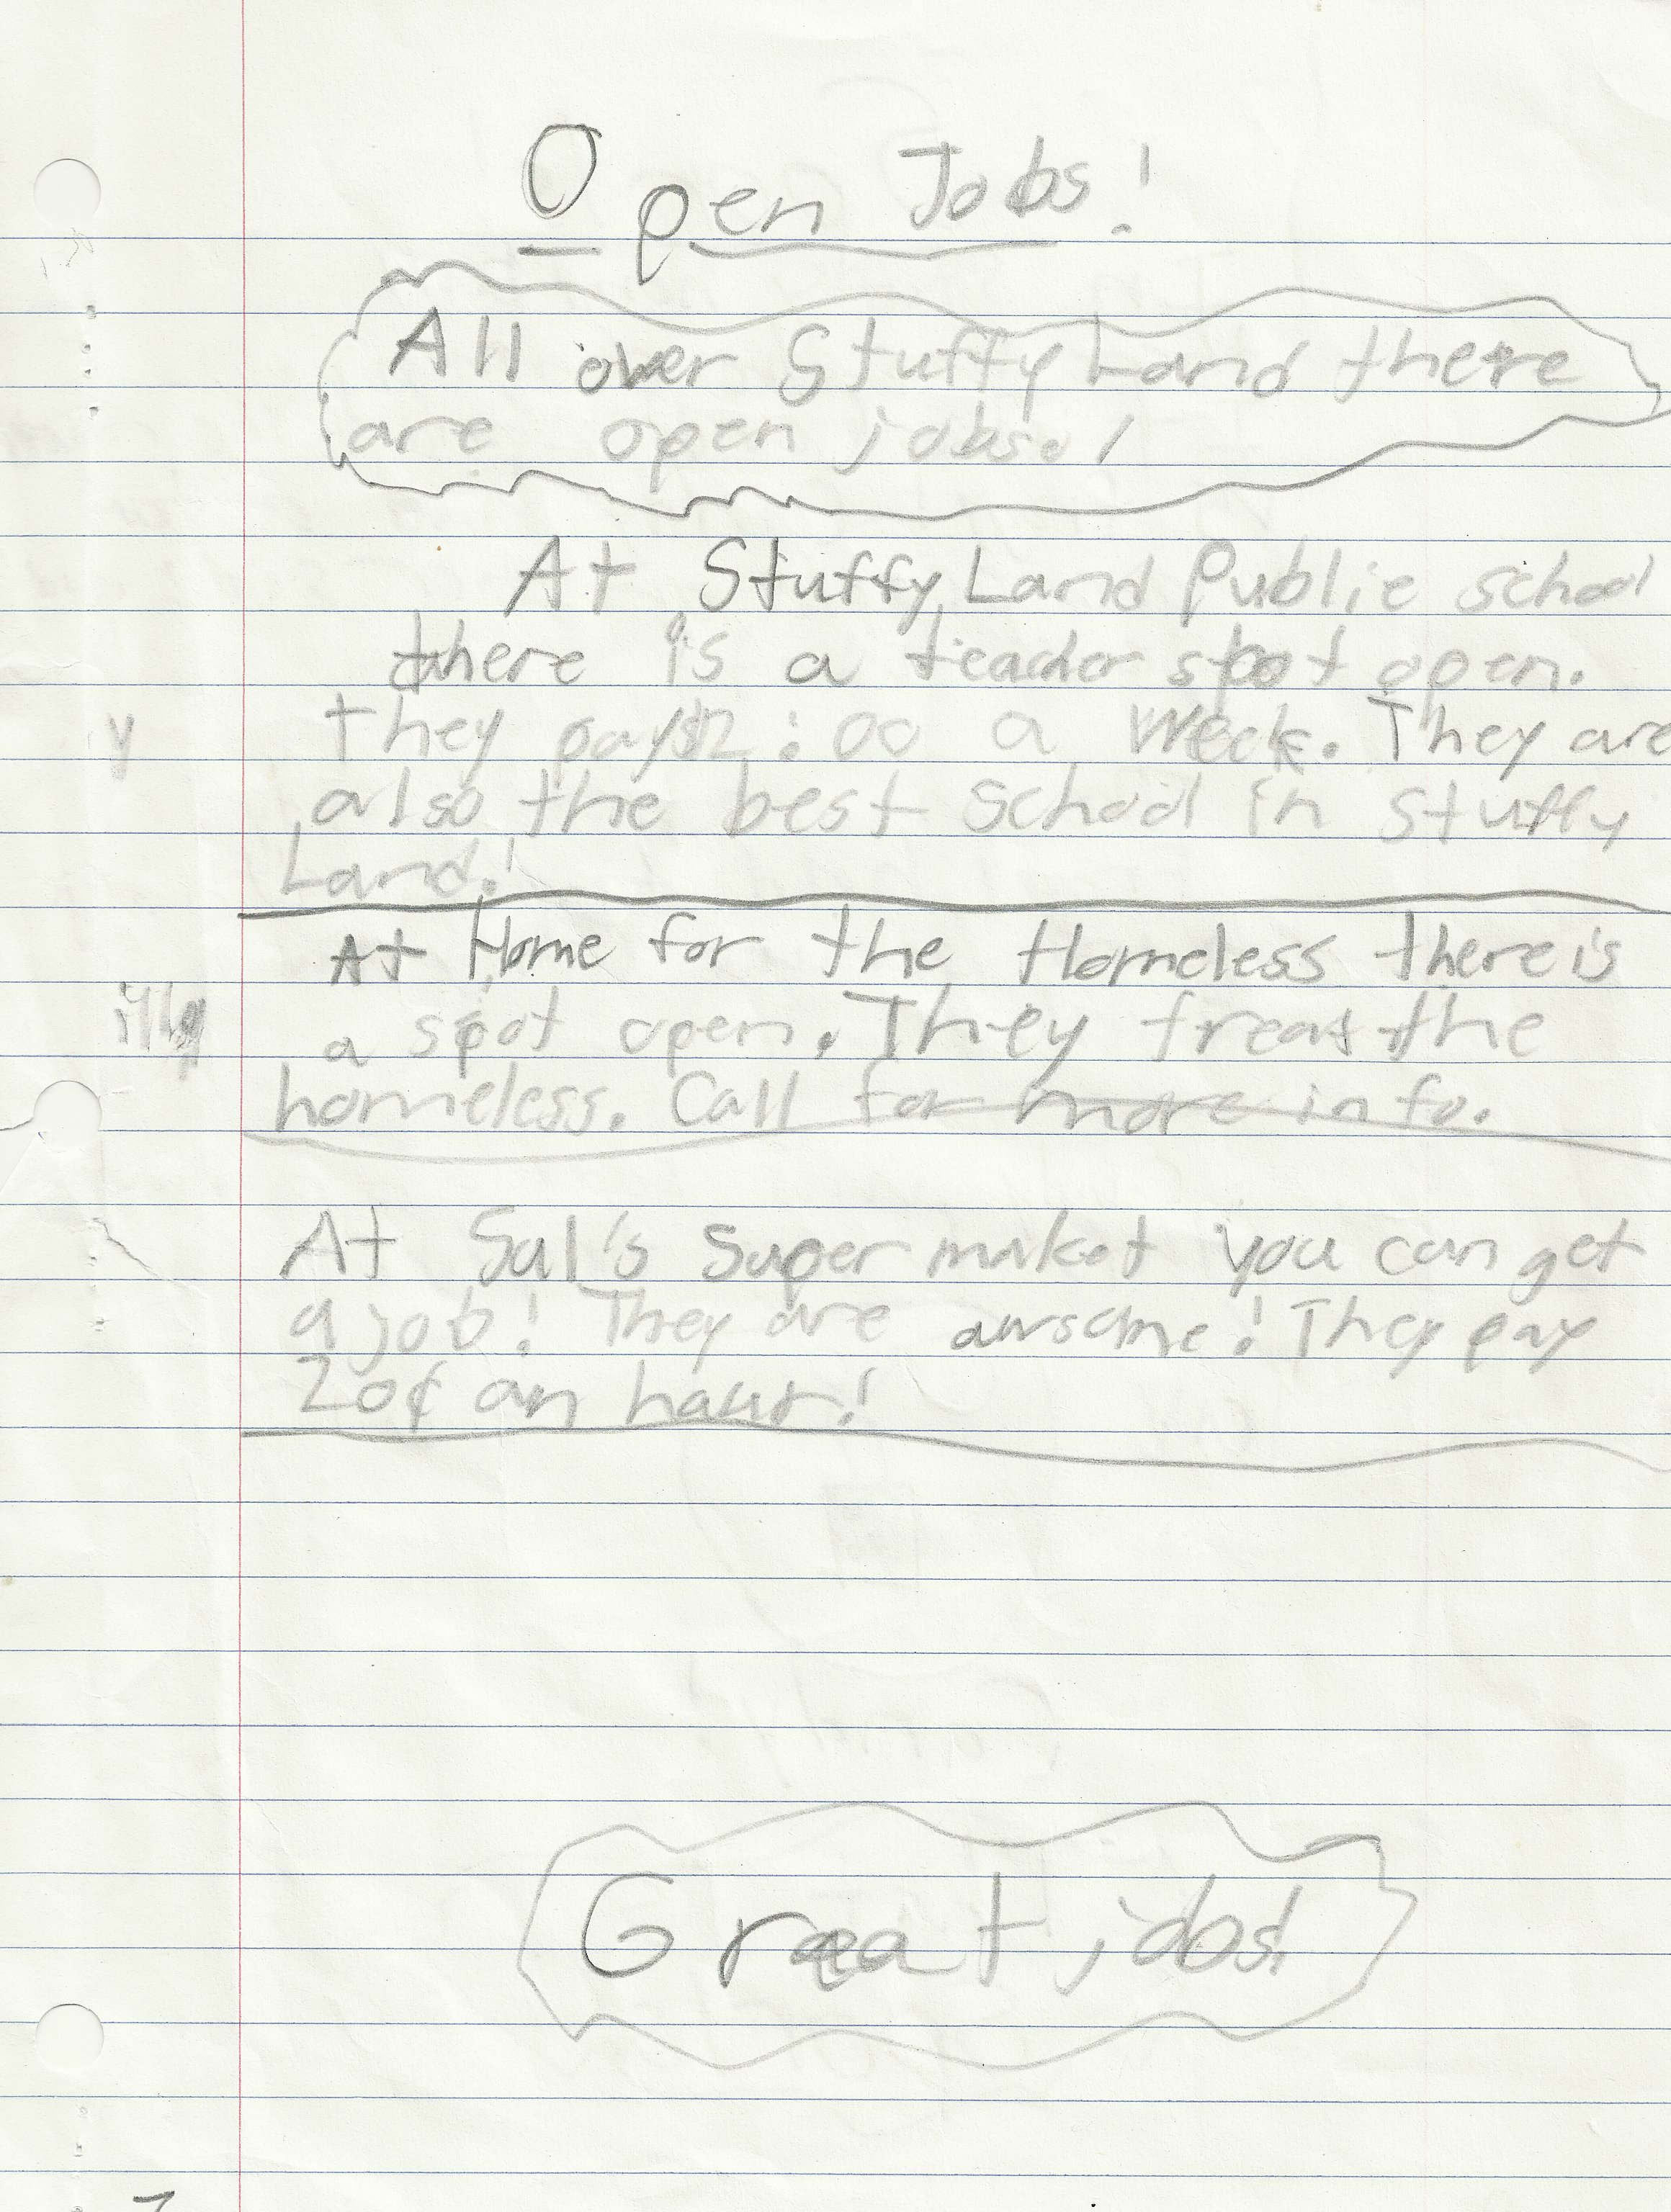 Open Jobs!
All over Stuffy Land there
are open jobs!
At Stuffy Land Public school
there is a teacher spot open.
they pay $2:00 a week. They are
also the best school in Stuffy
Land!
At Home for the Homeless there is
a spot open. They treat the
homeless. Call for more info.
At Sal's Super maket you can get
a job! They are awsome! They pay
20¢ an hour!
Great jobs!